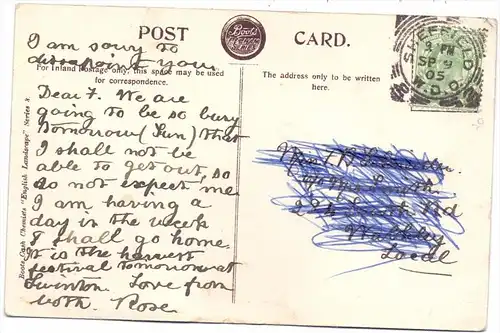 I am sorry to
dissapoint you
POST
Boots
CARD.
For Inland Postage only, this space may be used
for correspondence.
The address only to be written
here.
SHEFFIELD
3 PM
SP 9
05
Dear F. We are
going to be so busy
tomorrow (Sun) that
I shall not be
able to get out, so
do not expect me
I am having a
day in the week
I shall go home.
It is the harvest
festival tomorrow at
Swinton. Love from
both. Rose
South Rd
Walkley
Local
Boots Cash Chemists "English Landscape" Series